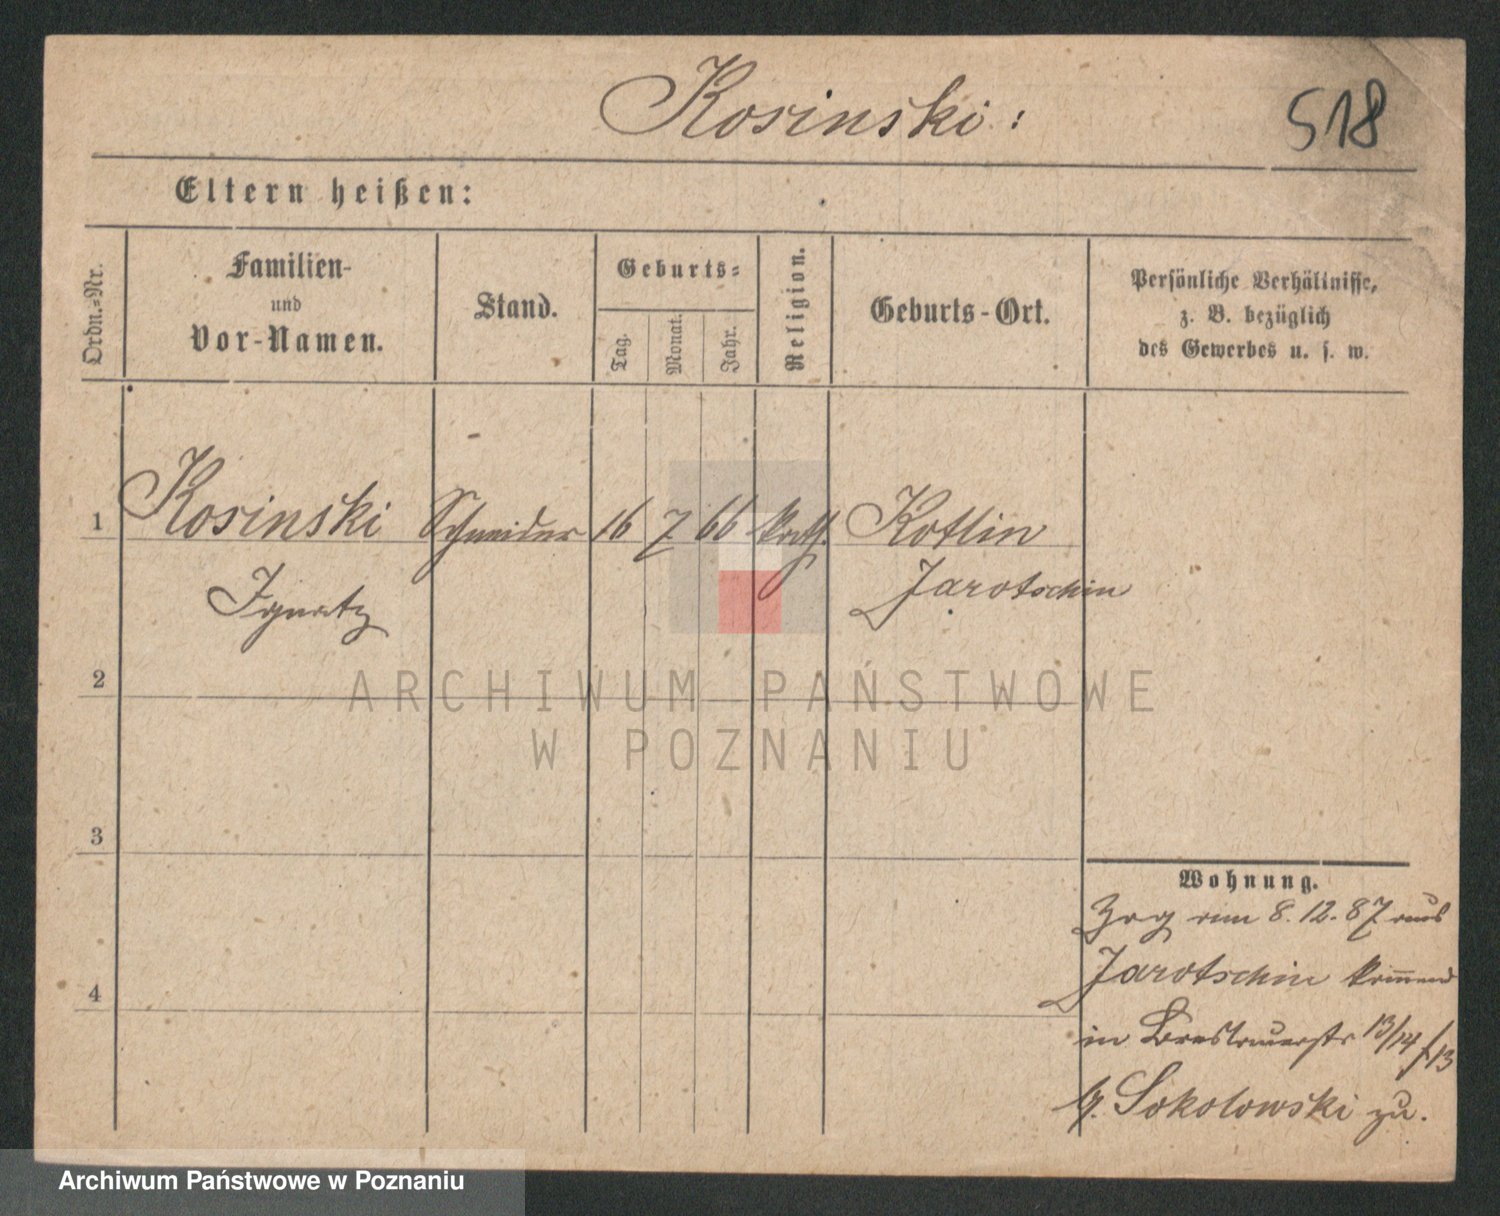 Kosinski:
518
Eltern heißen:
Ordn.-Nr.
Familien-
und
Vor-Namen.
Stand.
Geburts-
Tag.
Monat.
Jahr.
Religion.
Geburts-Ort.
Persönliche Verhältnisse,
z. B. bezüglich
des Gewerbes u. s. w.
1 Kosinski Schneider 16 7 66 kath. Kotlin
Ignatz Jarotschin
2
3
4
Wohnung.
Zog am 8.12.87 aus
Jarotschin kommend
in Breslauerstr 13/14
b. Sokolowski zu.
ARCHIWUM PAŃSTWOWE
W POZNANIU
Archiwum Państwowe w Poznaniu